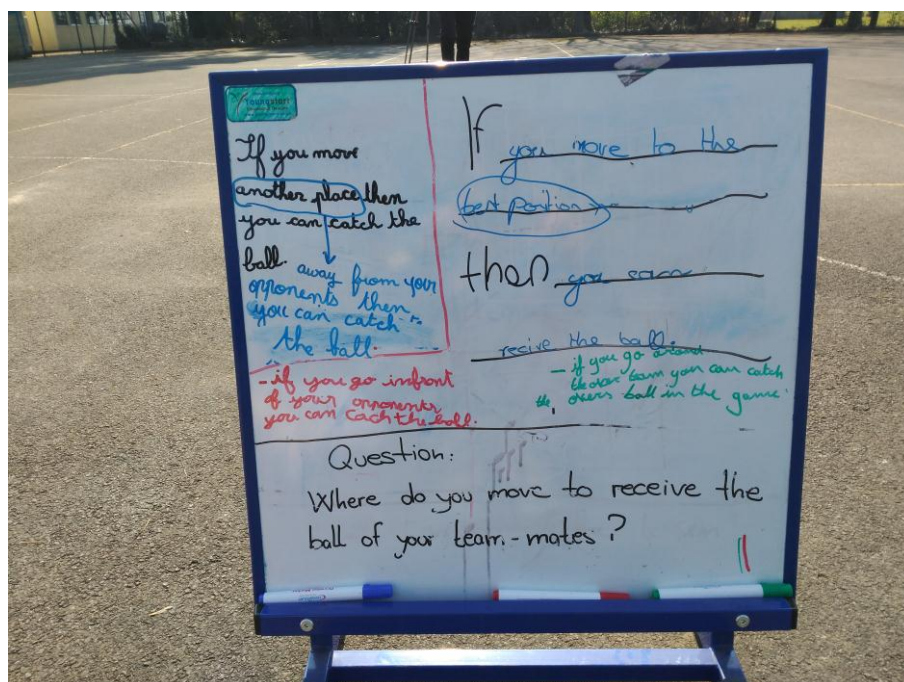 If you move
another place then
you can catch the
ball.
away from your
opponents then
you can catch
the ball.
If
you move to the
best position
then you can
recive the ball.
- if you go infront
of your opponents
you can cach the ball.
- if you go around
the over team you can catch
the overs ball in the game.
Question:
Where do you move to receive the
ball of your team-mates?